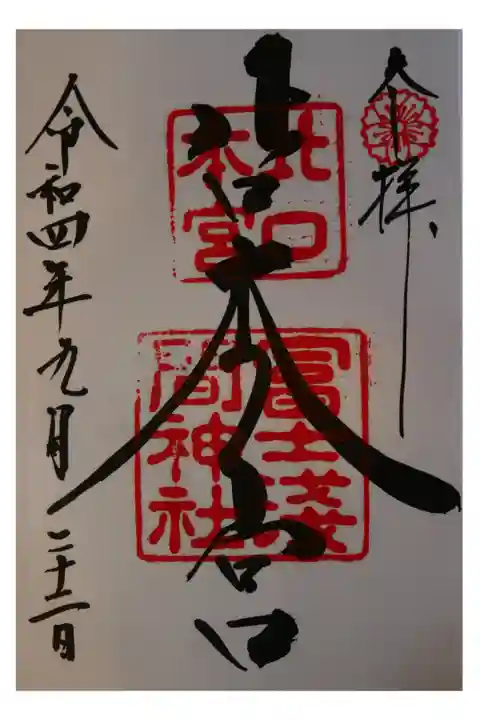 奉拝
北口本宮
北口
本宮
冨士淺
間神社
令和四年九月二十二日